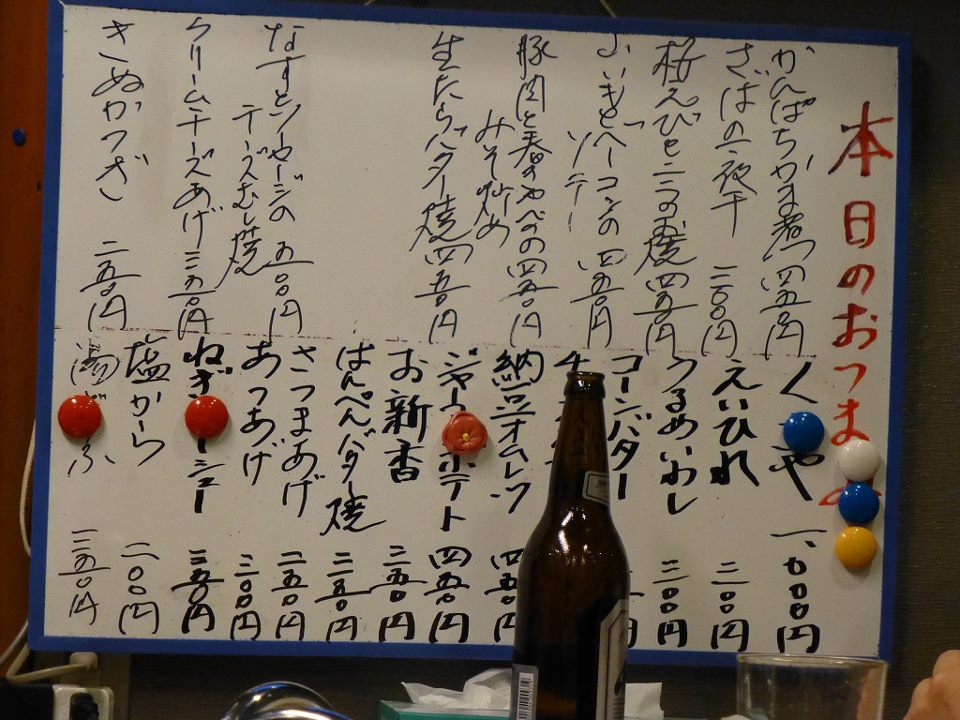 本日のおつまみ
かんぱちかま煮つ 四五〇円
さばの一夜干 三〇〇円
桜えびと三つのお焼 四五〇円
ベーコンの
ソテー 四五〇円
豚肉と春キャベツの
みそ炒め 四五〇円
生たらバター焼 四五〇円
なすとソーセージの
チーズむし焼 五〇〇円
クリームチーズあげ 三五〇円
きぬかつぎ 二五〇円
くや 一、〇〇〇円
えいひれ 三〇〇円
うるめいわし 三〇〇円
コーンバター
納豆オムレツ 四五
ジャーマンポテト 四五〇円
お新香 三五〇円
はんぺんバター焼 三五〇円
さつまあげ 三五〇円
あつあげ 三〇〇円
ねぎシュー 三五〇円
塩から 二〇〇円
湯どふ 三五〇円